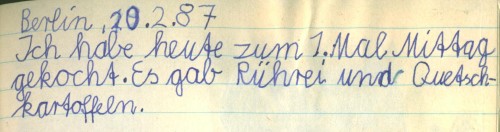 Berlin, 20.2.87
Ich habe heute zum 1. Mal Mittag
gekocht. Es gab Rührei und Quetsch-
kartoffeln.